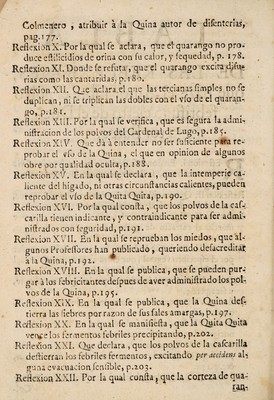 Colmenero, atribuir à la Quina autor de disenterias,
pag. 177.
Reflexion X. Por la qual se aclara, que el quarango no pro
duce estilicidios de orina con su calor, y sequedad, p. 178.
Reflexion XI. Donde se refuta, que el quarango excita disu-
rias como las cantaridas, p. 180.
Reflexion XII. Que aclara el que las tercianas simples no se
duplican, ni se triplican las dobles con el vso de el quaran-
go, p. 181.
Reflexion XIII. Por la qual se verifica, que es segura la admi-
nistracion de los polvos del Cardenal de Lugo, p. 185.
Reflexion XIV. Que dà à entender no ser suficiente para re-
probar el vso de la Quina, el que en opinion de algunos
obre por qualidad oculta, p. 188.
Reflexion XV. En la qual se declara, que la intemperie ca-
liente del higado, ni otras circunstancias calientes, pueden
reprobar el vso de la Quita Quita, p. 190.
Reflexion XVI. Por la qual consta, que los polvos de la cas-
carilla tienen indicante, y contraindicante para ser admi-
nistrados con seguridad, p. 191.
Reflexion XVII. En la qual se reprueban los miedos, que al-
gunos Professores han publicado, queriendo desacreditar
à la Quina, p. 192.
Reflexion XVIII. En la qual se publica, que se pueden pur-
gar à los febricitantes despues de aver administrado los pol-
vos de la Quina, p. 195.
Reflexion XIX. En la qual se publica, que la Quina des-
tierra las fiebres por razon de sus sales amargas, p. 197.
Reflexion XX. En la qual se manifiesta, que la Quita Quita
vence los fermentos febriles precipitando, p. 202.
Reflexion XXI. Que declara, que los polvos de la cascarilla
destierran los febriles fermentos, excitando per accidens al-
guna evacuacion sensible, p. 203.
Reflexion XXII. Por la qual consta, que la corteza de qua-
ran-